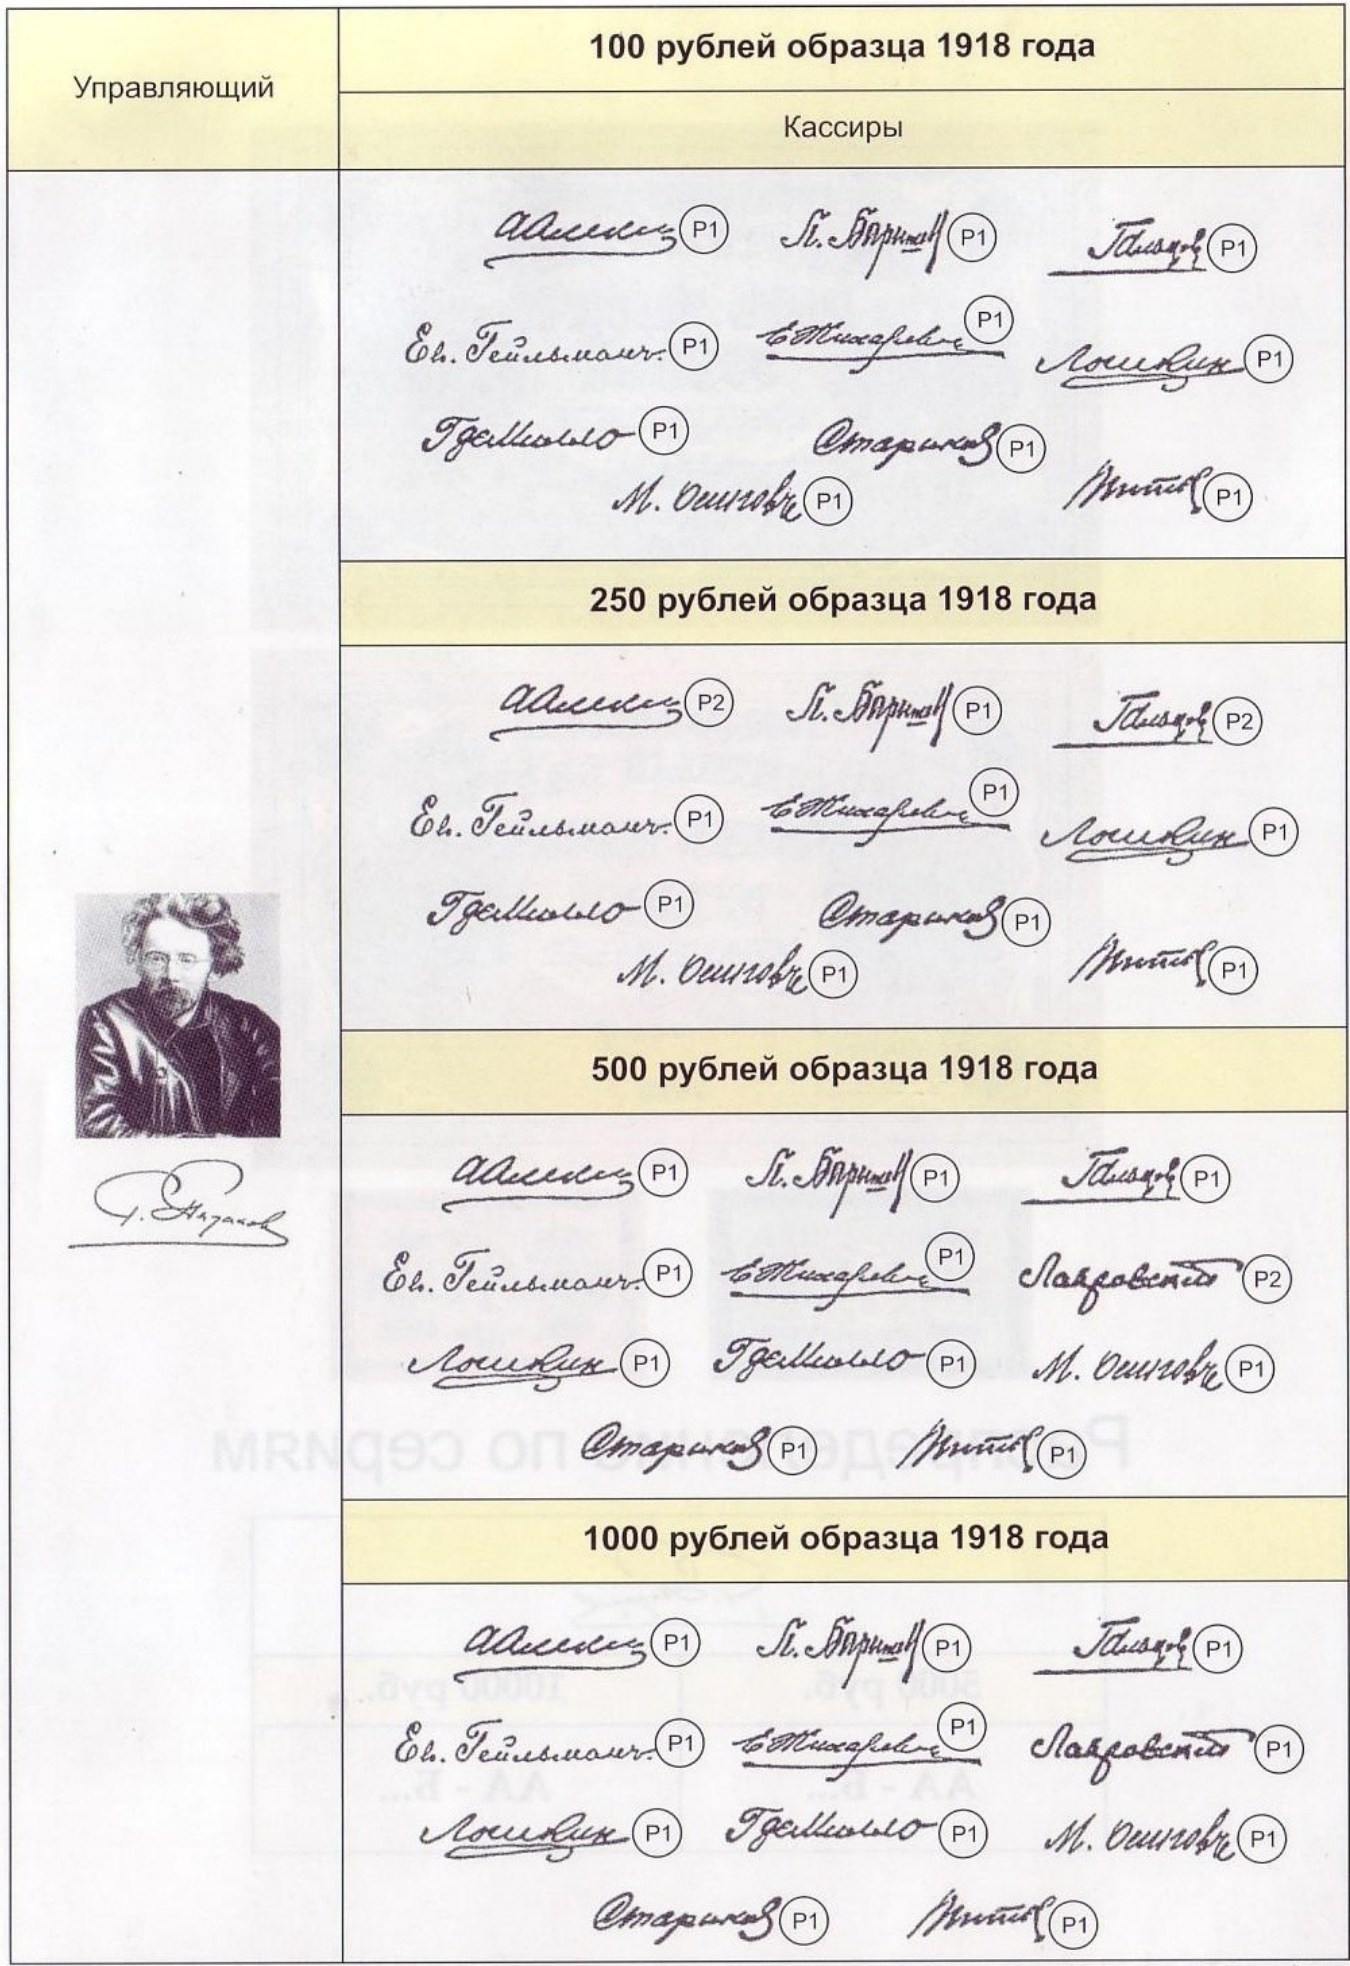 Управляющий
100 рублей образца 1918 года
Кассиры
P1 П. Барышев P1 Гальцов P1
Ев. Гейльман P1 Е Жихарев P1 Лошкин P1
ГдеМилло P1 Стариков P1
М. Осипов P1 P1
250 рублей образца 1918 года
P2 П. Барышев P1 Гальцов P2
Ев. Гейльман P1 Е Жихарев P1 Лошкин P1
ГдеМилло P1 Стариков P1
М. Осипов P1 P1
500 рублей образца 1918 года
P1 П. Барышев P1 Гальцов P1
Ев. Гейльман P1 Е Жихарев P1 Лавровский P2
Лошкин P1 ГдеМилло P1 М. Осипов P1
Стариков P1 P1
1000 рублей образца 1918 года
P1 П. Барышев P1 Гальцов P1
Ев. Гейльман P1 Е Жихарев P1 Лавровский P1
Лошкин P1 ГдеМилло P1 М. Осипов P1
Стариков P1 P1